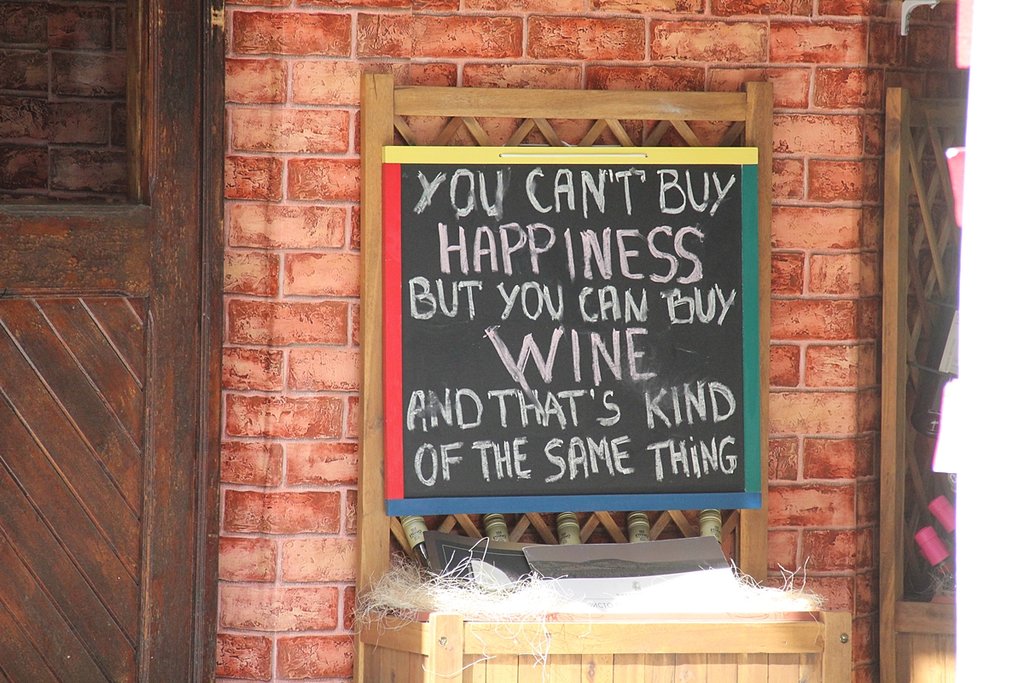 YOU CAN'T BUY
HAPPINESS
BUT YOU CAN BUY
WINE
AND THAT'S KIND
OF THE SAME THING